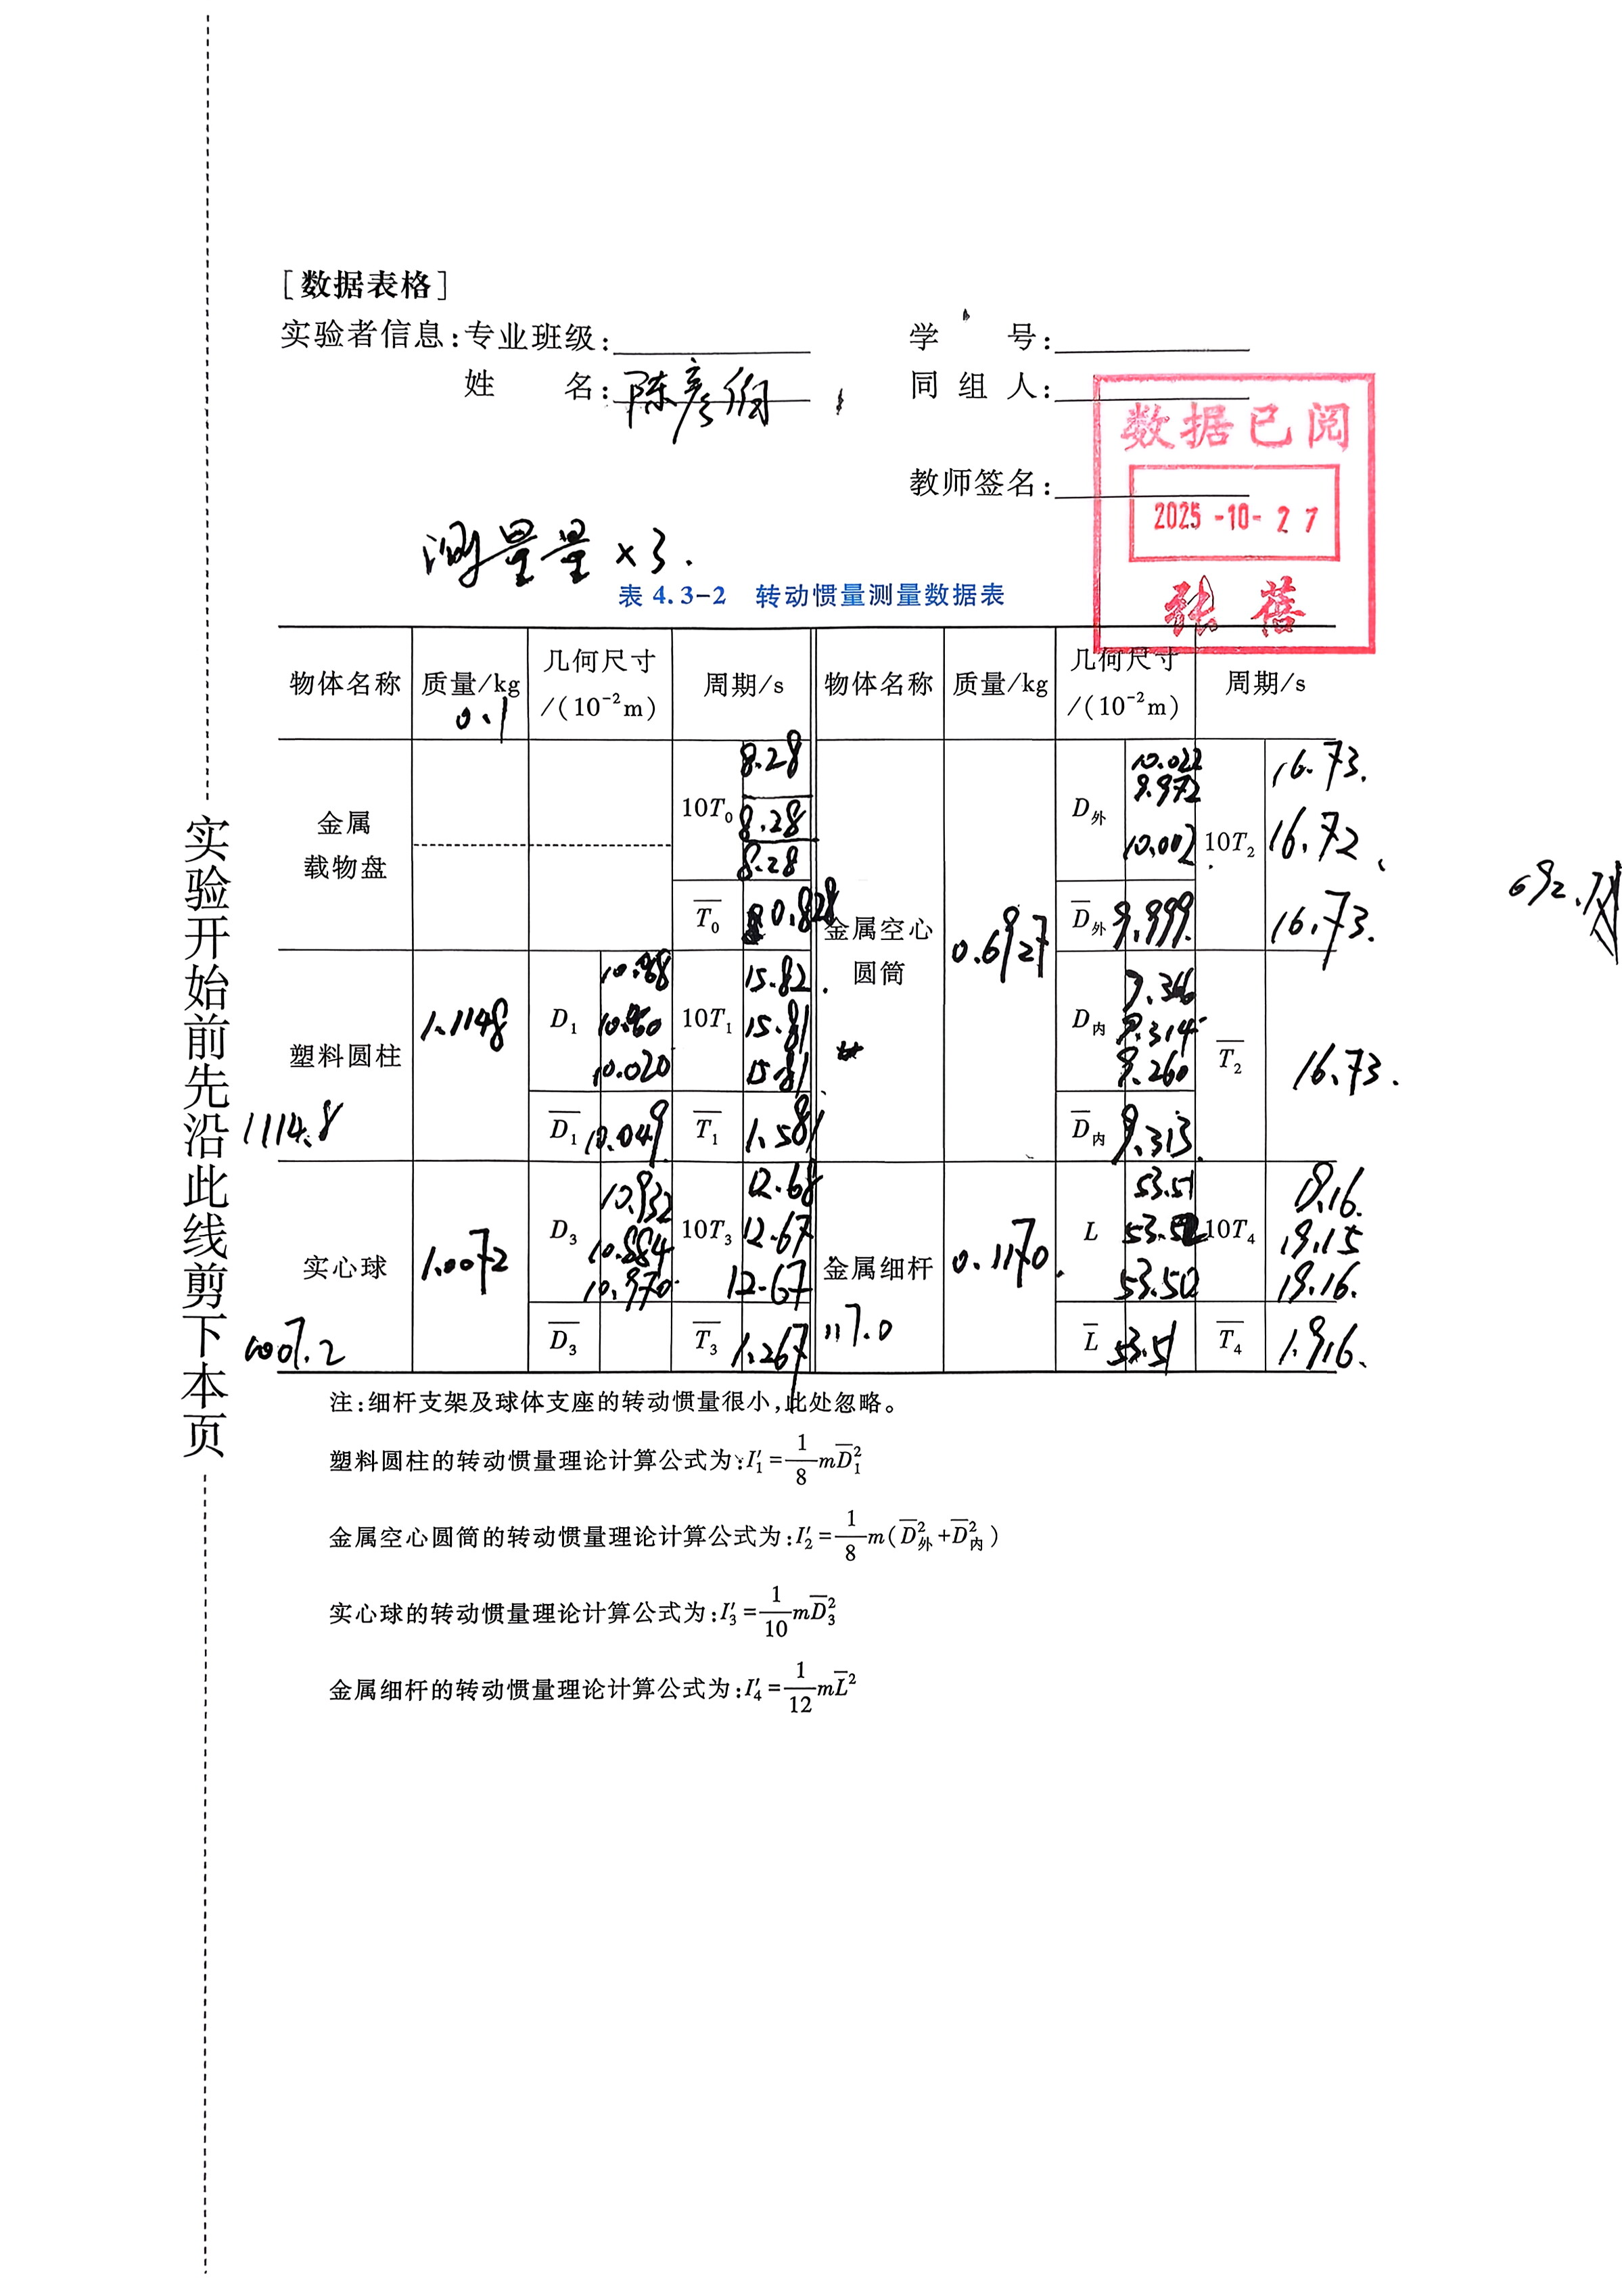 [数据表格]
实验者信息:专业班级:
学 号:
姓 名:陈彦
同 组 人:
教师签名:
数据已阅
2025-10-27
张 蓓
测量量×3.
表 4.3-2 转动惯量测量数据表
物体名称 质量/kg 几何尺寸/(10⁻²m) 周期/s 物体名称 质量/kg 几何尺寸/(10⁻²m) 周期/s
0.1
金属载物盘 10T₀ 8.28
8.28
8.28
T̄₀ 0.828
塑料圆柱 1.1148 D₁
10.020
D̄₁ 10.049
10T₁ 15.82
15.81
15.81
T̄₁ 1.581
1114.8
实心球 1.0072 D₃ 10.932
10.884
10.970
D̄₃
10T₃ 12.68
12.67
12.67
T̄₃ 1.267
1007.2
金属空心圆筒 0.6927 D外 10.022
9.972
10.002
D̄外 9.999
D内
9.314
9.260
D̄内 9.313
10T₂ 16.73
16.72
16.73
T̄₂ 16.73
金属细杆 0.1170 L 53.51
53.50
L̄ 53.51
10T₄
19.15
19.16
T̄₄ 1.916
117.0
注:细杆支架及球体支座的转动惯量很小,此处忽略。
塑料圆柱的转动惯量理论计算公式为:I′₁=1/8 mD̄₁²
金属空心圆筒的转动惯量理论计算公式为:I′₂=1/8 m(D̄外²+D̄内²)
实心球的转动惯量理论计算公式为:I′₃=1/10 mD̄₃²
金属细杆的转动惯量理论计算公式为:I′₄=1/12 mL̄²
实验开始前先沿此线剪下本页